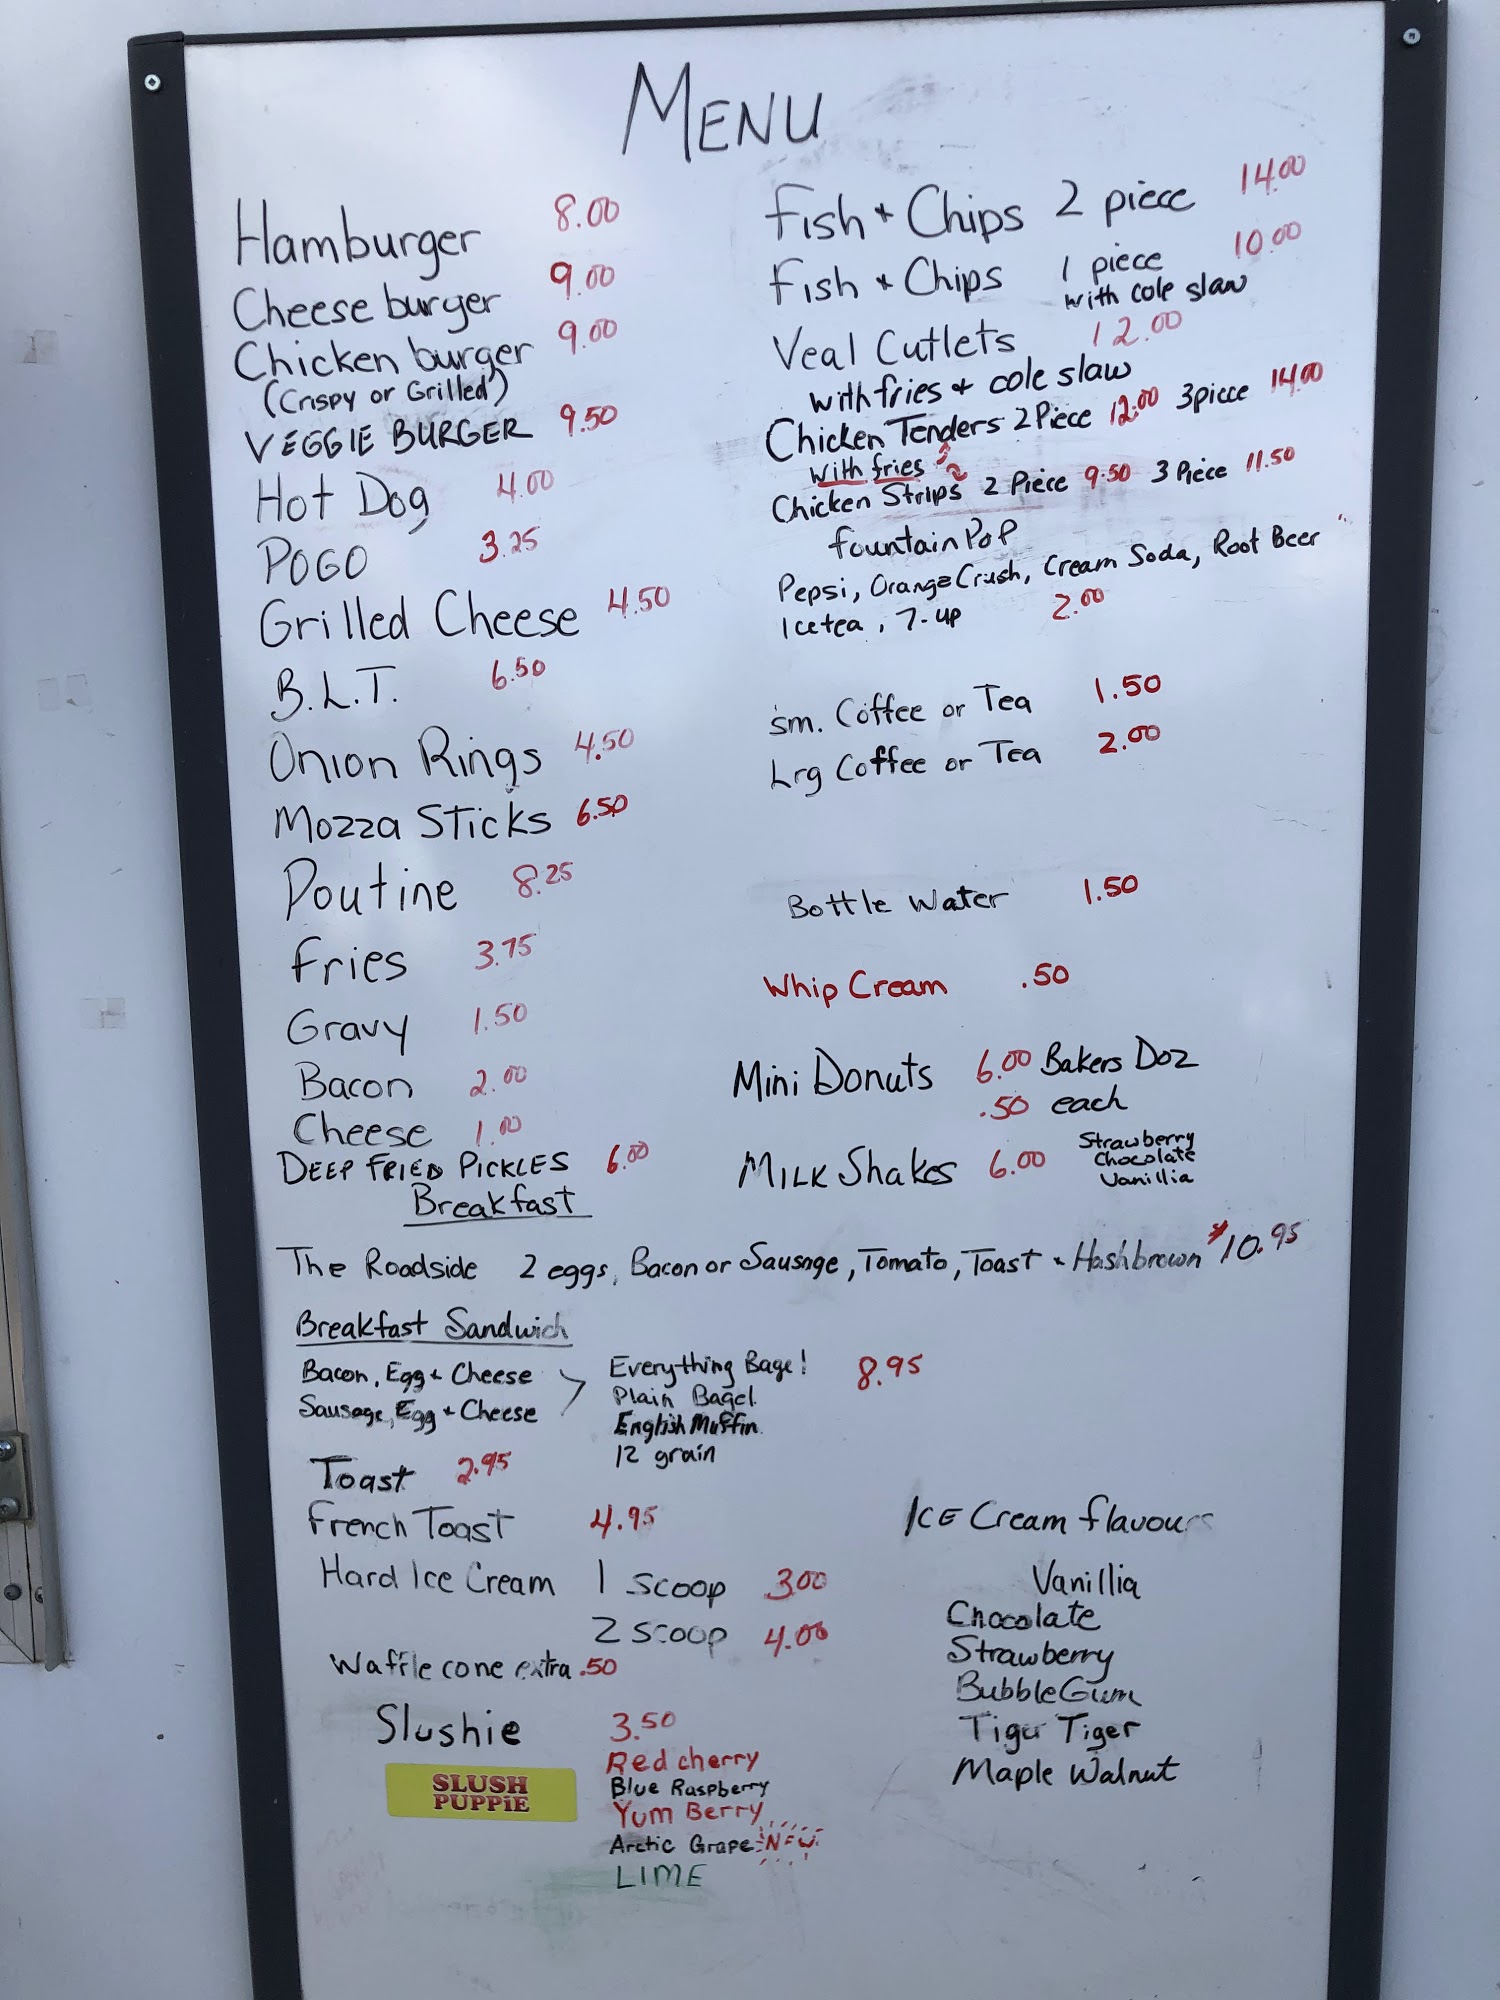 MENU
Hamburger 8.00
Cheese burger 9.00
Chicken burger 9.00
(Crispy or Grilled)
VEGGIE BURGER 9.50
Hot Dog 4.00
POGO 3.25
Grilled Cheese 4.50
B.L.T. 6.50
Onion Rings 4.50
Mozza Sticks 6.50
Poutine 8.25
Fries 3.75
Gravy 1.50
Bacon 2.00
Cheese 1.00
DEEP FRIED PICKLES 6.00
Fish + Chips 2 piece 14.00
Fish + Chips 1 piece 10.00
with cole slaw
Veal Cutlets 12.00
with fries + cole slaw
Chicken Tenders 2 Piece 12.00 3 piece 14.00
with fries
Chicken Strips 2 Piece 9.50 3 Piece 11.50
fountain Pop
Pepsi, Orange Crush, Cream Soda, Root Beer
Icetea, 7-up 2.00
sm. Coffee or Tea 1.50
Lrg Coffee or Tea 2.00
Bottle Water 1.50
Whip Cream .50
Mini Donuts 6.00 Bakers Doz
.50 each
MILK Shakes 6.00 Strawberry
Chocolate
Vanillia
Breakfast
The Roadside 2 eggs, Bacon or Sausage, Tomato, Toast + Hashbrown $10.95
Breakfast Sandwich
Bacon, Egg + Cheese
Sausage, Egg + Cheese
Everything Bagel 8.95
Plain Bagel
English Muffin
12 grain
Toast 2.95
French Toast 4.95
Hard Ice Cream 1 scoop 3.00
2 scoop 4.00
Waffle cone extra .50
Slushie 3.50
SLUSH
PUPPiE
Red cherry
Blue Raspberry
Yum Berry
Arctic Grape NEW
LIME
ICE Cream flavours
Vanillia
Chocolate
Strawberry
BubbleGum
Tiger Tiger
Maple Walnut